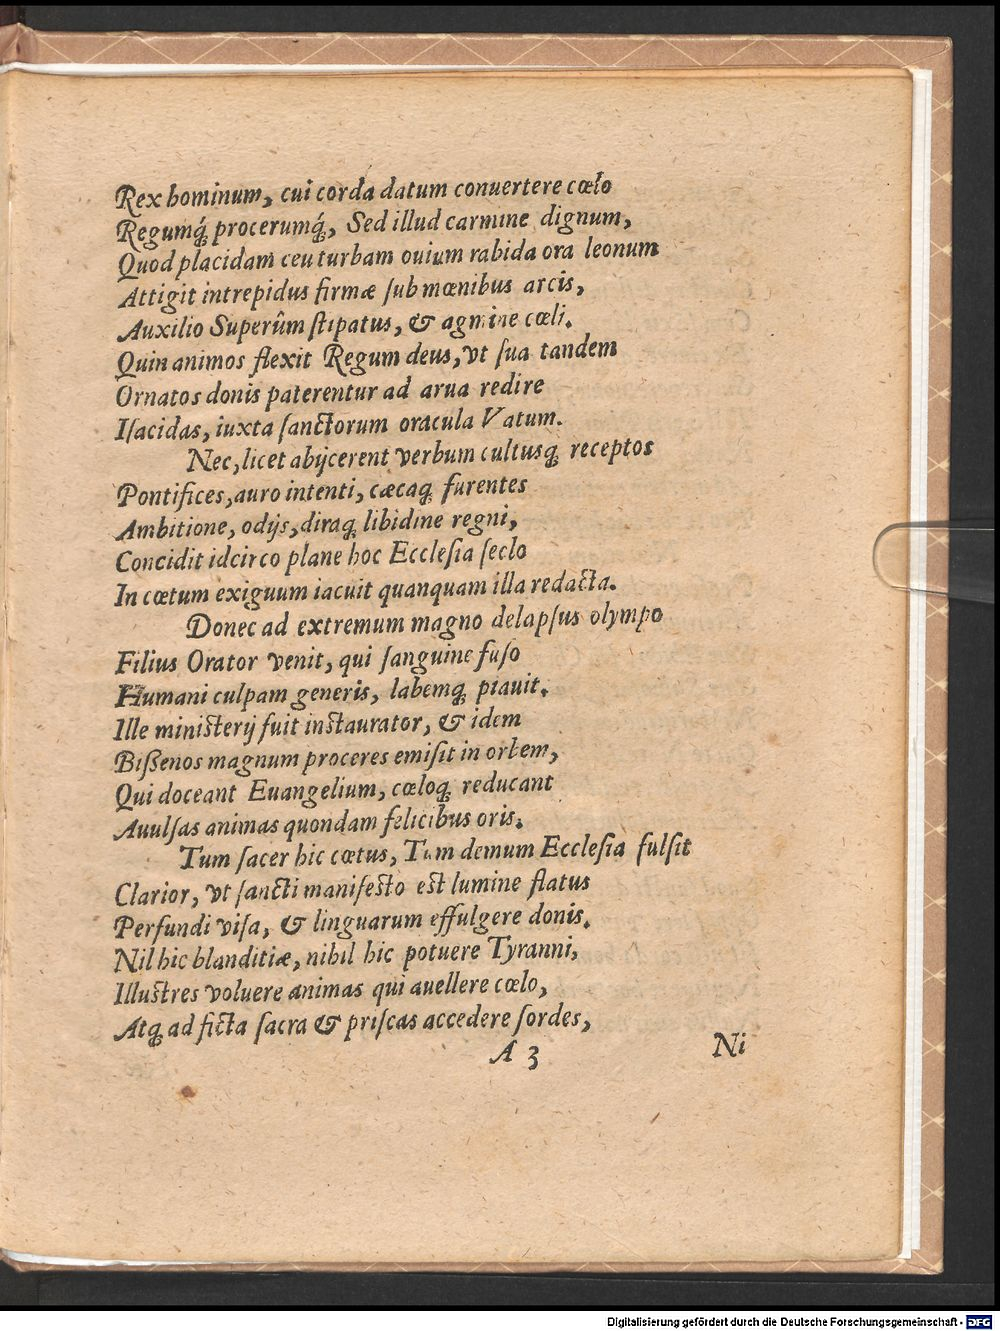 Rex hominum, cui corda datum conuertere cœlo
Regumq́; procerumq́;, Sed illud carmine dignum,
Quod placidam ceu turbam ouium rabida ora leonum
Attigit intrepidus firmæ ſub mœnibus arcis,
Auxilio Superûm ſtipatus, & agmine cœli.
Quin animos flexit Regum deus, vt ſua tandem
Ornatos donis paterentur ad arua redire
Iſacidas, iuxta ſanctorum oracula Vatum.
Nec, licet abijcerent verbum cultusq; receptos
Pontifices, auro intenti, cæcaq; furentes
Ambitione, odijs, diraq; libidine regni,
Concidit idcirco plane hoc Eccleſia ſeclo
In cœtum exiguum iacuit quanquam illa redacta.
Donec ad extremum magno delapſus olympo
Filius Orator venit, qui ſanguine fuſo
Humani culpam generis, labemq; piauit.
Ille ministerij fuit instaurator, & idem
Bißenos magnum proceres emiſit in orbem,
Qui doceant Euangelium, cœloq; reducant
Auulſas animas quondam felicibus oris.
Tum ſacer hic cœtus, Tum demum Eccleſia fulſit
Clarior, vt ſancti manifesto est lumine flatus
Perfundi viſa, & linguarum effulgere donis.
Nil hic blanditiæ, nihil hic potuere Tyranni,
Illustres voluere animas qui auellere cœlo,
Atq; ad ficta ſacra & priſcas accedere ſordes,
A 3 Ni
Digitalisierung gefördert durch die Deutsche Forschungsgemeinschaft - DFG